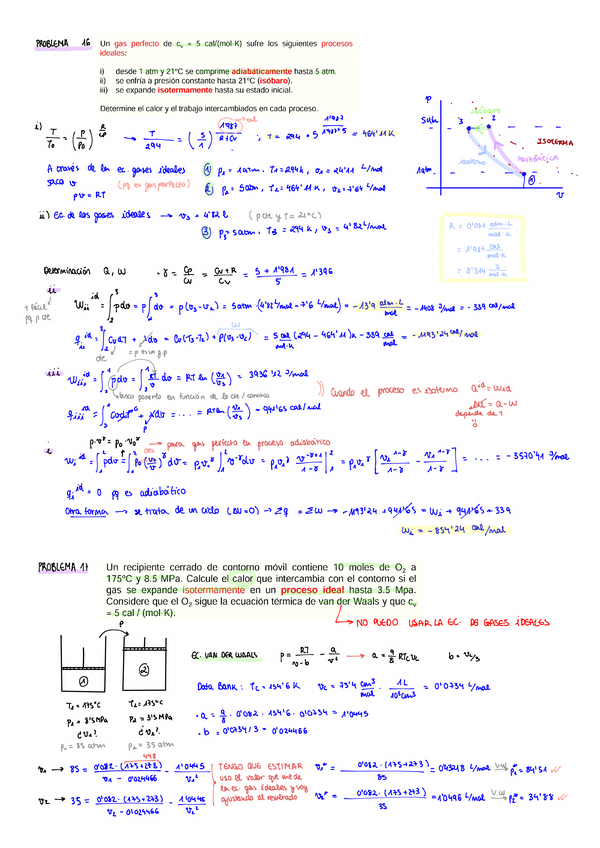 PROBLEMA 16 Un gas perfecto de cv = 5 cal/(mol·K) sufre los siguientes procesos
ideales:
i) desde 1 atm y 21ºC se comprime adiabáticamente hasta 5 atm.
ii) se enfría a presión constante hasta 21ºC (isóbaro).
iii) se expande isotermamente hasta su estado inicial.
Determine el calor y el trabajo intercambiados en cada proceso.
P
isóbaro
5atm
3 2
ISOTERMA
isotermo
ADIABÁTICA
1atm
v
i) T/T0 = (P/P0)^(R/cp) → T/294 = (5/1)^(1'987/(R+Cv)) ; T = 294 · 5^(1'987/(1'987+5)) = 464'11 K
A través de la ec. gases ideales ① P1 = 1atm. T1 = 294K, v1 = 24'11 L/mol
saco v (pq es gas perfecto) ② P2 = 5atm, T2 = 464'11 K, v2 = 7'64 L/mol
pv = RT
ii) Ec de los gases ideales → v3 = 4'82 L (p cte y T = 21ºC)
③ P3 = 5atm. T3 = 294 K, v3 = 4'82 L/mol
R = 0'082 atm·L/mol·K
= 1'987 cal/mol·K
= 8'314 J/mol·K
Determinación Q, W · γ = Cp/Cv = (Cv+R)/Cv = (5 + 1'981)/5 = 1'396
ii
Wii^id = ∫ pdv = p ∫ dv = p (v3-v2) = 5atm (4'82 L/mol - 7'6 L/mol) = -13'9 atm·L/mol = -1408 J/mol = -339 cal/mol
+ fácil
pq p cte
W
q ii^id = ∫ CvdT + pdv = Cv(T3-T2) + P(v3-v2) = 5 cal/mol·K (294 - 464'11) K - 339 cal/mol = -1193'24 cal/mol
cte
iii
Wiii^id = ∫ pdv = ∫ RT/v dv = RT ln (v1/v3) = 3936'12 J/mol
busco ponerlo en función de lo cte / conozco
Cuando el proceso es isotermo Q^id = Wid
ΔU = Q - W
depende de T
0
qiii^id = ∫ CvdT + pdv = .... = RT ln (v1/v3) = 941'65 cal/mol
i
p·v^γ = p0·v0^γ → para gas perfecto en proceso adiabático
Wi^id = ∫ pdv = ∫ p0 (v0/v)^γ dv = p1v1^γ ∫ v^-γ dv = p1v1^γ v^(-γ+1)/(1-γ) | = p1v1^γ [v2^(1-γ)/(1-γ) - v1^(1-γ)/(1-γ)] = .... = -3570'41 J/mol
qi^id = 0 pq es adiabático
Otra forma → se trata de un ciclo (ΔU=0) → Σq = ΣW → -1193'24 + 941'65 = Wi + 941'65 - 339
Wi = -854'24 cal/mol
PROBLEMA 17 Un recipiente cerrado de contorno móvil contiene 10 moles de O2 a
175ºC y 8.5 MPa. Calcule el calor que intercambia con el contorno si el
gas se expande isotermamente en un proceso ideal hasta 3.5 Mpa.
Considere que el O2 sigue la ecuación térmica de van der Waals y que cv
= 5 cal / (mol·K).
NO PUEDO USAR LA EC. DE GASES IDEALES
P
① ②
EC. VAN DER WAALS P = RT/(v-b) - a/v² → a = 9/8 RTcVc b = vc/3
Data Bank : Tc = 154'6 K vc = 73'4 cm³/mol · 1L/10³cm³ = 0'0734 L/mol
T1 = 175ºC T2 = 175ºC
P1 = 8'5MPa P2 = 3'5MPa
¿v1? ¿v2?
P1 = 85 atm P2 = 35 atm
· a = 9/8 · 0'082 · 154'6 · 0'0734 = 1'0445
· b = 0'0734/3 = 0'024466
448
v1 → 85 = 0'082·(175+273)/(v1 - 0'024466) - 1'0445/v1²
v2 → 35 = 0'082·(175+273)/(v2 - 0'024466) - 1'0445/v2²
TENGO QUE ESTIMAR
uso el valor que me da
la ec. gas ideales y voy
ajustando al resultado
v1* = 0'082·(175+273)/85 = 0'43218 L/mol V.W P1* = 84'51
v2* = 0'082·(175+273)/35 = 1'0496 L/mol V.W P2* = 34'88